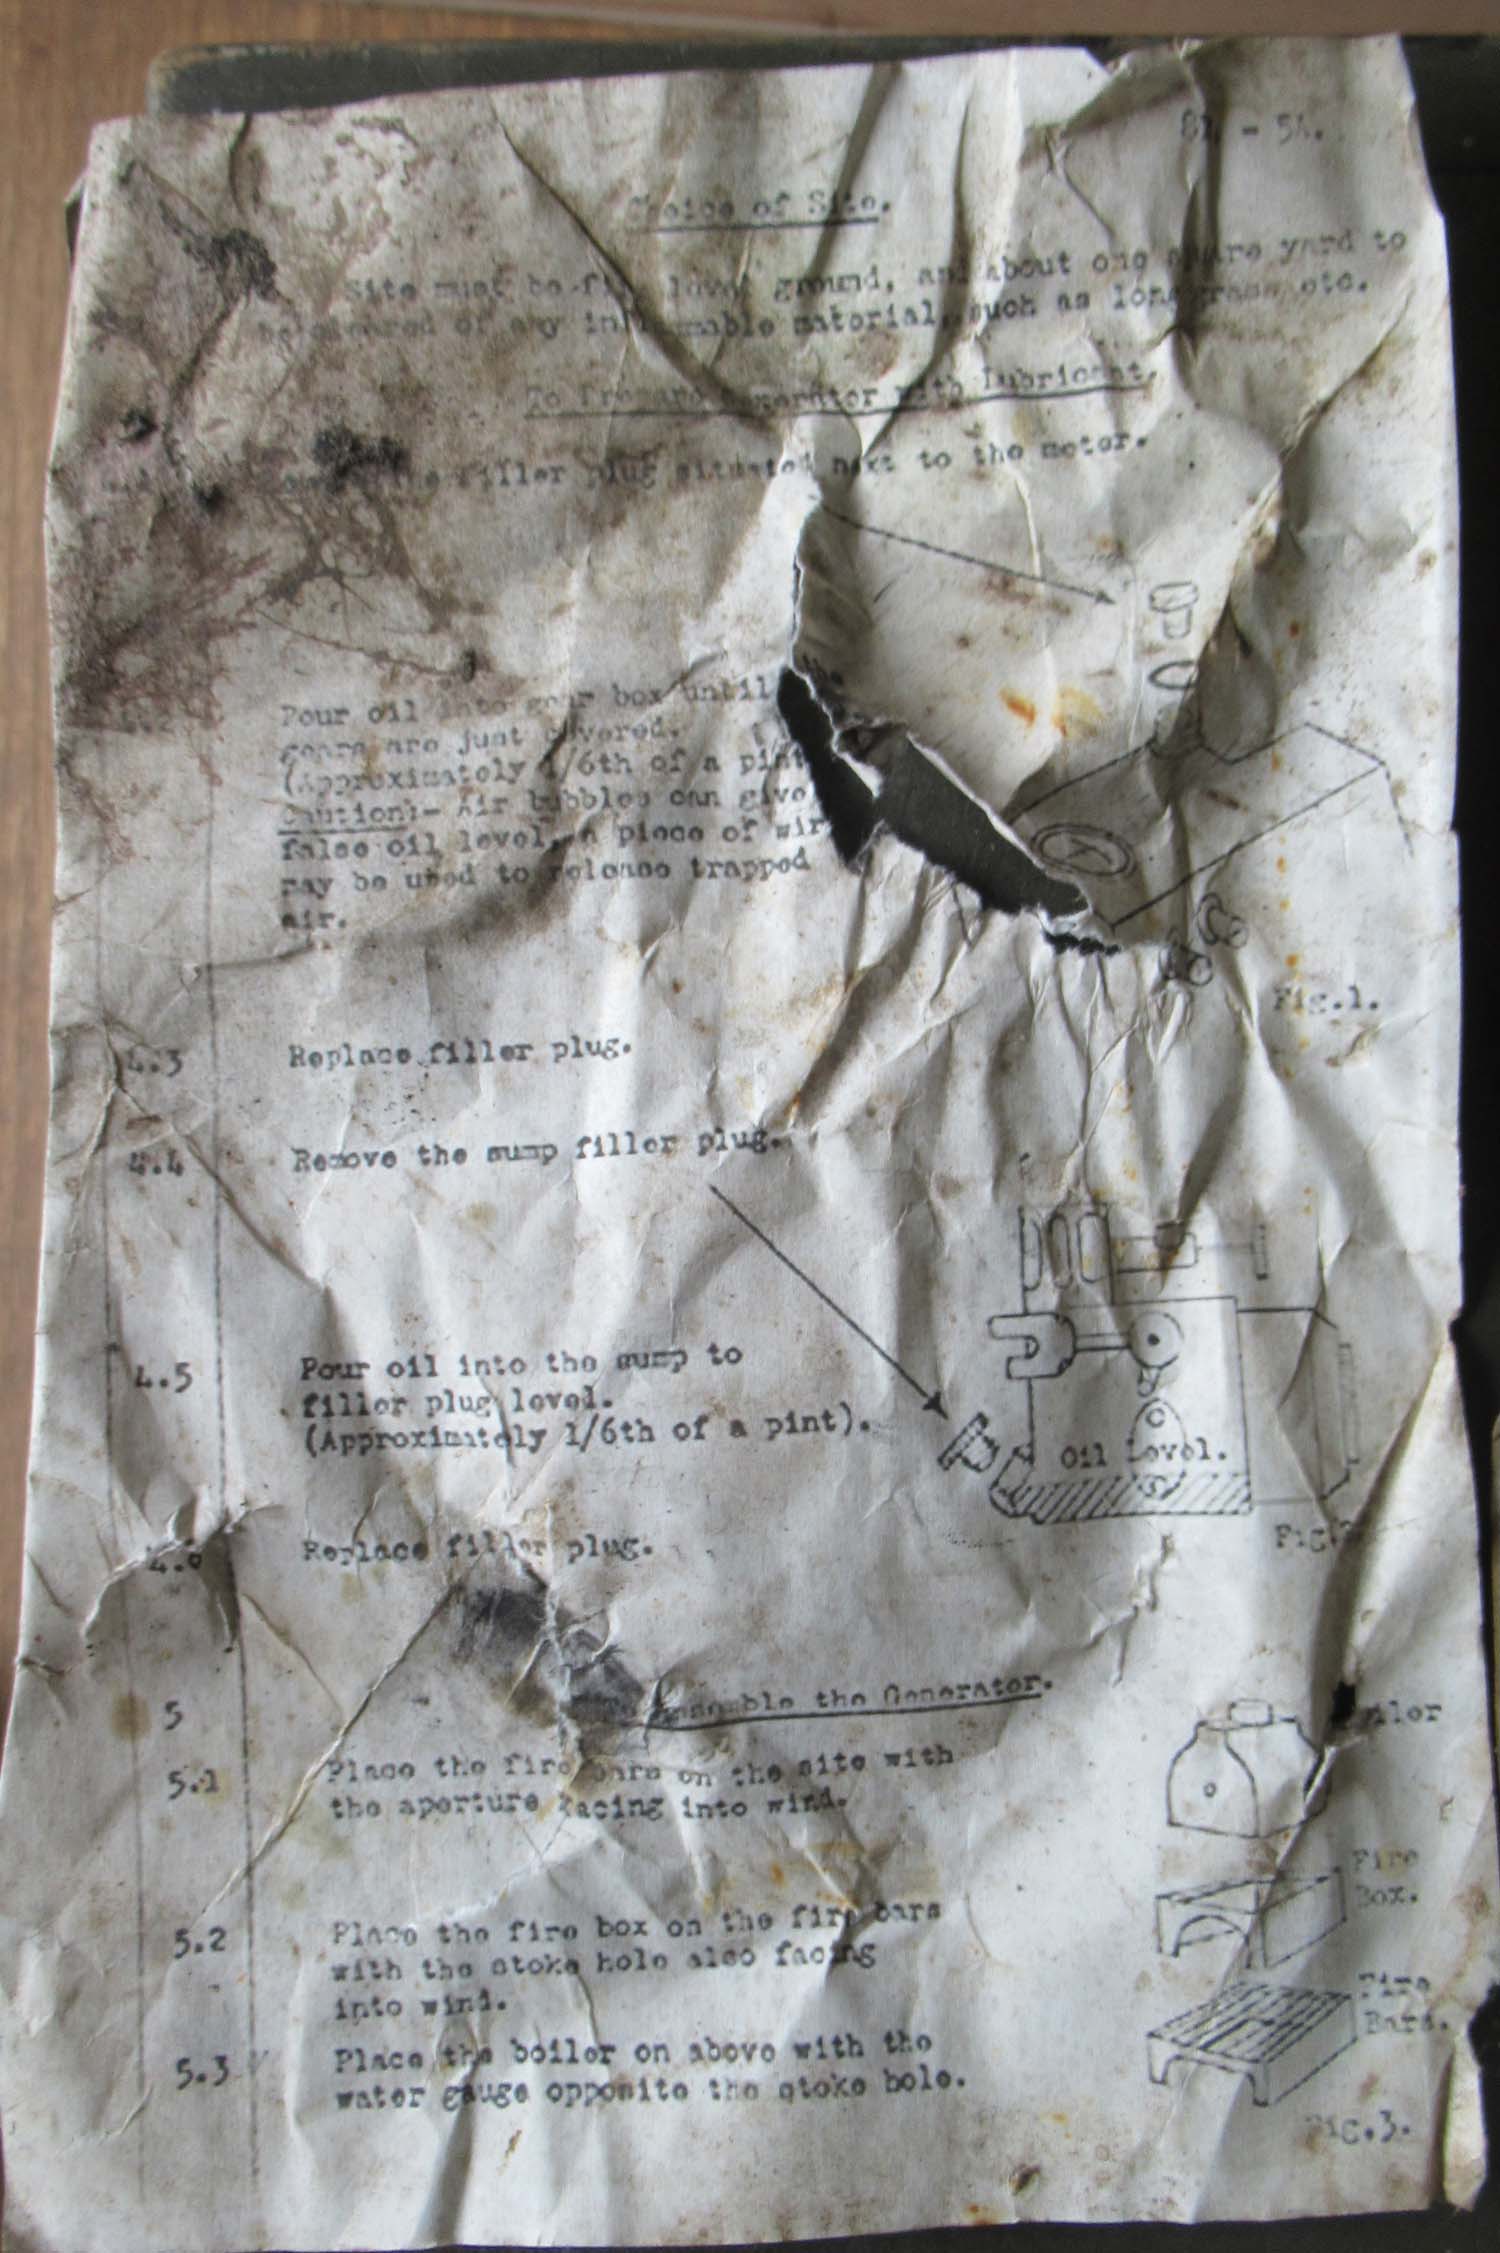 Choice of Site.
Site must be level ground, and about one square yard to
of any inflammable material, such as long grass etc.
Generator with Lubricant.
filler plug situated next to the motor.
Pour oil into gear box until the
gears are just covered.
(Approximately 1/6th of a pint
Caution:- Air bubbles can give
false oil level, a piece of wire
may be used to release trapped
air.
Fig.1.
4.3 Replace filler plug.
4.4 Remove the sump filler plug.
4.5 Pour oil into the sump to
filler plug level.
(Approximately 1/6th of a pint).
Oil Level.
4.6 Replace filler plug.
5 Assemble the Generator.
5.1 Place the fire bars on the site with
the aperture facing into wind.
Boiler
Fire
Box.
5.2 Place the fire box on the fire bars
with the stoke hole also facing
into wind.
Fire
Bars.
5.3 Place the boiler on above with the
water gauge opposite the stoke hole.
Fig.3.